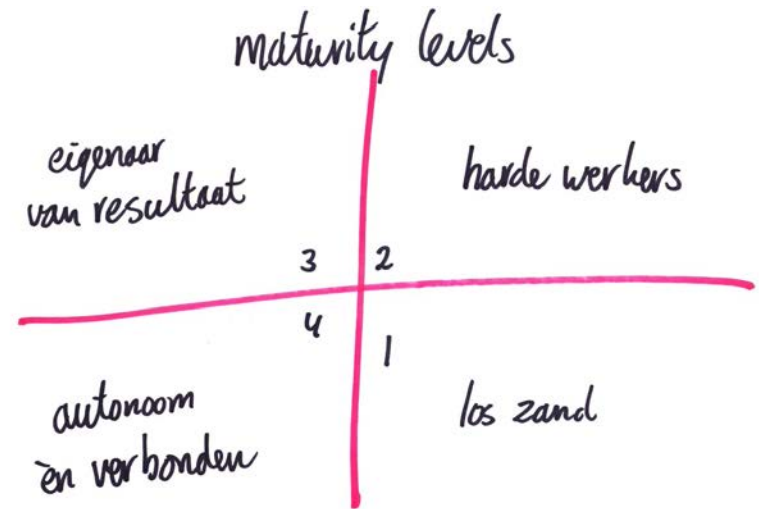 maturity levels
eigenaar
van resultaat
harde werkers
3
2
4
1
autonoom
èn verbonden
los zand